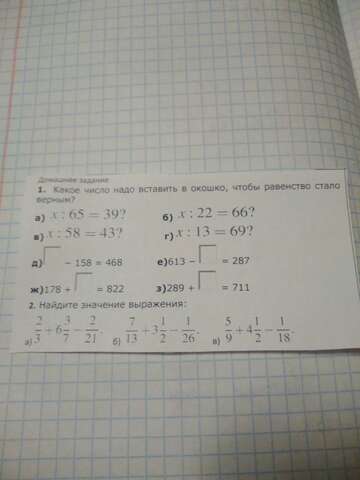 Домашнее задание
1. Какое число надо вставить в окошко, чтобы равенство стало
верным?
а) x : 65 = 39? б) x : 22 = 66?
в) x : 58 = 43? г) x : 13 = 69?
д) □ − 158 = 468 е) 613 − □ = 287
ж) 178 + □ = 822 з) 289 + □ = 711
2. Найдите значение выражения:
а) 2/3 + 6 3/7 − 2/21. б) 7/13 + 3 1/2 − 1/26. в) 5/9 + 4 1/2 − 1/18.